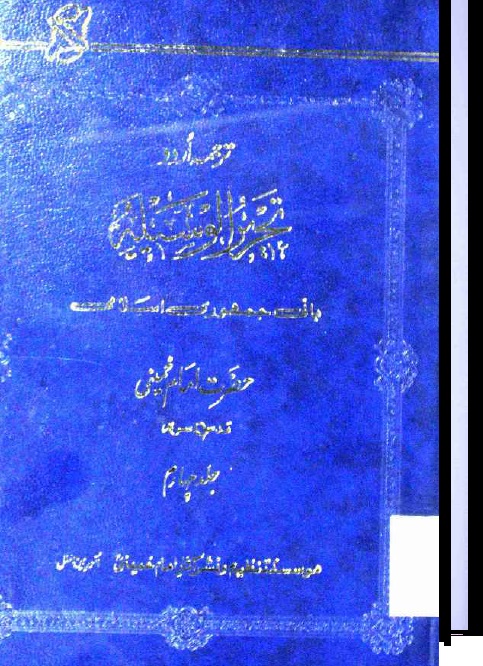 ترجمہ اُردو
تحریر الوسیلہ
بانئ جمهوری اسلامی
حضرت امام خمینی
قدس سرہ
جلد چہارم
موسسہ تنظیم و نشر آثار امام خمینی